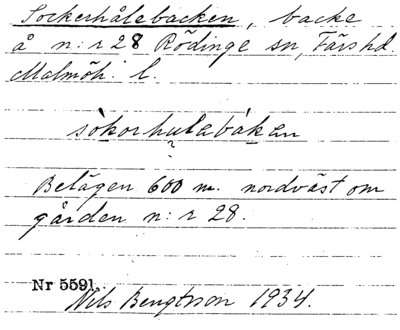 Sockerhålebacken, backe
å n:r 28 Rödinge sn, Färs hd.
Malmöh. l.
sòkorhulabákan
Belägen 600 m. nordväst om
gården n:r 28.
Nr 5591.
Nils Bengtsson 1934.